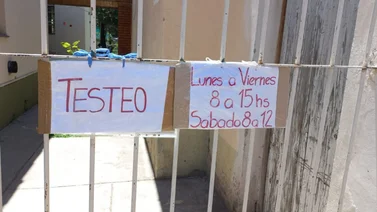 TESTEO
Lunes a Viernes
8 a 15 hs
Sabado 8 a 12